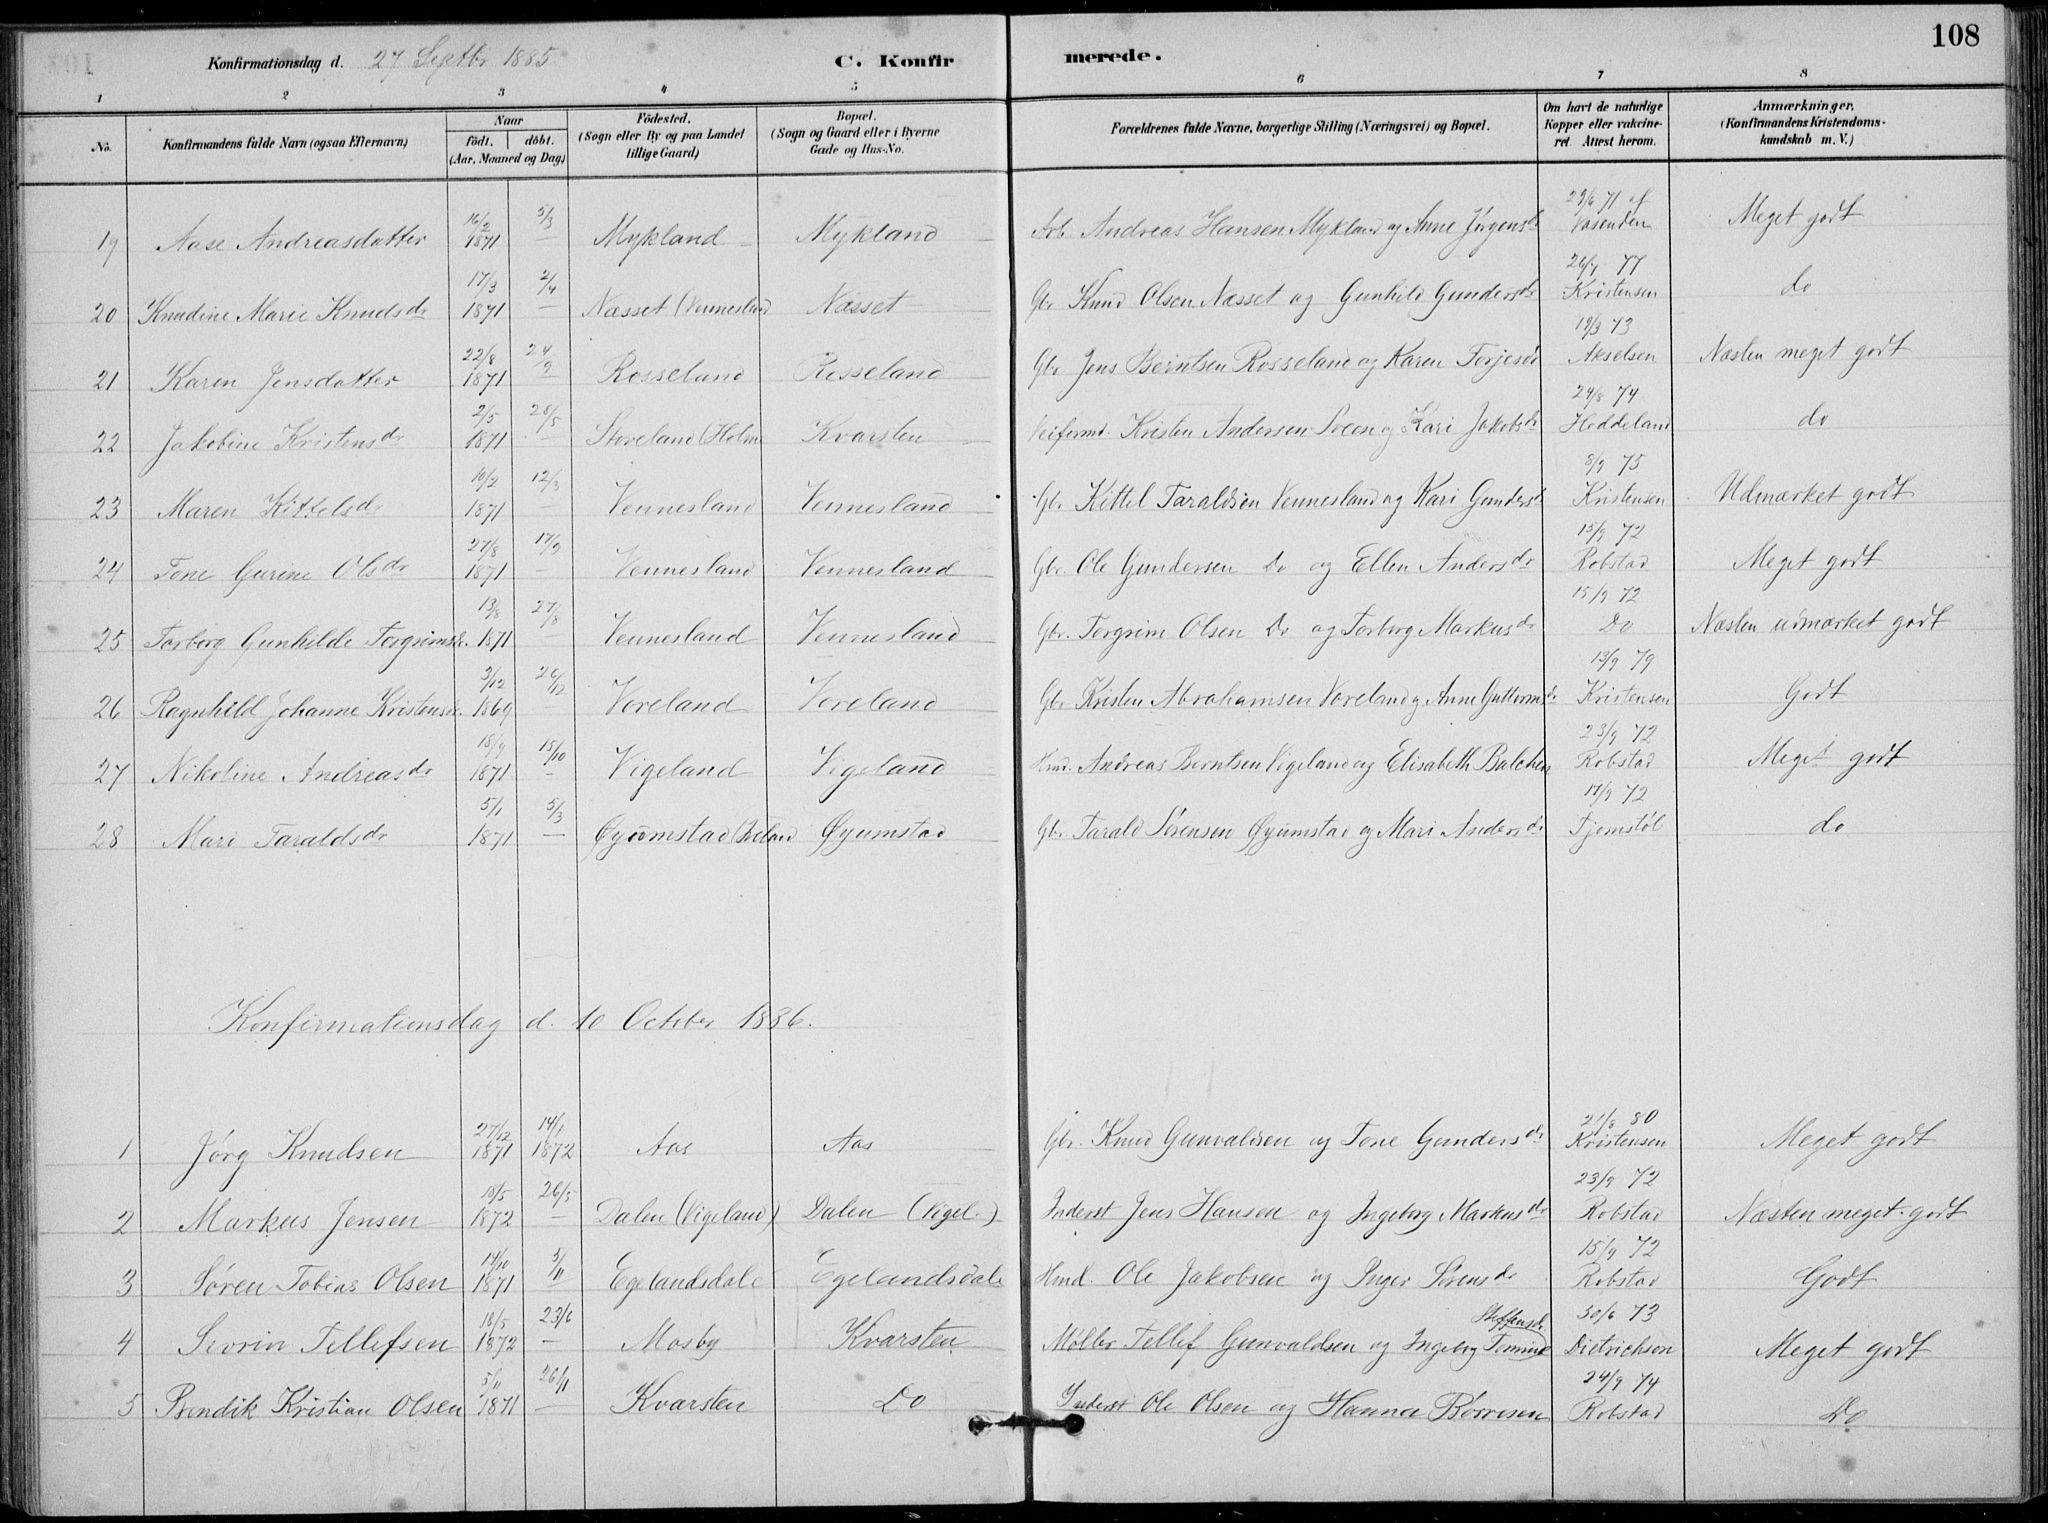 108
Konfirmationsdag d. 27 Septbr 1885 C. Konfirmerede.
1 2 3 4 5 6 7 8
No. Konfirmandens fulde Navn (ogsaa Efternavn) Naar født. døbt. (Aar, Maaned og Dag) Fødested. (Sogn eller By og paa Landet tillige Gaard) Bopæl. (Sogn og Gaard eller i Byerne Gade og Hus-No. Forældrenes fulde Navne, borgerlige Stilling (Næringsvei) og Bopæl. Om havt de naturlige Kopper eller vakcineret. Attest herom. Anmærkninger, (Konfirmandens Kristendomskundskab m. V.)
19 Aase Andreasdatter 16/2 1871 5/3 — Mykland Mykland Arb. Andreas Hansen Mykland og Anne Jørgensd. 29/6 71 af Vasenden Meget godt
20 Knudine Marie Knudsdr 17/3 1871 2/4 — Næsset (Vennesland Næsset Gbr Knud Olsen Næsset og Gunhild Gundersdr 26/9 77 Kristensen do
21 Karen Jensdatter 22/8 1871 24/9 Rosseland Rosseland Gbr Jens Berntsen Rosseland og Karen Torjesd 19/3 73 Akselsen Næsten meget godt
22 Jakobine Kristensdr 2/5 1871 28/5 — Stoveland (Holm Kvarsten Veiformd. Kristen Andersen og Kari Jakobsdr 24/8 74 Heddeland do
23 Maren Kittelsdr 10/2 1871 12/3 — Vennesland Vennesland Gbr. Kittel Taraldsen Vennesland og Kari Gundersd 8/9 75 Kristensen Udmærket godt
24 Tone Gurine Olsdr 27/8 1871 17/9 — Vennesland Vennesland Gbr. Ole Gundersen Do og Ellen Andersdr 15/9 72 Robstad Meget godt
25 Torborg Gunhilde Torgrimsd. 13/8 1871 27/8 — Vennesland Vennesland Gbr. Torgrim Olsen Do og Torborg Markusdr 15/9 72 Do Næsten udmærket godt
26 Ragnhild Johanne Kristensdr. 3/12 1869 26/12 — Voreland Voreland Gbr. Kristen Abrahamsen Voreland og Anne Guttormsdr 13/9 79 Kristensen Godt
27 Nikoline Andreasdr 18/9 1871 15/10 — Vigeland Vigeland Hmd. Andreas Berntsen Vigeland og Elisabeth Balchen 23/9 72 Robstad Meget godt
28 Mari Taraldsdr 5/1 1871 5/3 — Øyumstad (Iveland Øyumstad Gbr Tarald Sørensen Øyumstad og Mari Andersdr 17/9 72 Tjomstøl do
Konfirmationsdag d. 10 October 1886.
1 Jørg Knudsen 27/12 1871 14/1 1872 Aas Aas Gbr. Knud Gunvaldsen og Tone Gundersdr 21/8 80 Kristensen Meget godt
2 Markus Jensen 18/5 1872 26/5 — Dalen (Vigeland) Dalen (Vigel.) Inderst Jens Hansen og Ingeborg Markusdr 23/9 72 Robstad Næsten meget godt
3 Søren Tobias Olsen 14/10 1871 5/11 Egelandsdale Egelandsdale Hmd. Ole Jakobsen og Inger Sørensdr 15/9 72 Robstad Godt
4 Sevrin Tellefsen 18/5 1872 23/6 — Mosby Kvarsten Møller Tellef Gunvaldsen og Ingeborg Steffensdr 30/6 73 Dietrichson Meget godt
5 Bendik Kristian Olsen 5/11 1871 26/11 — Kvarsten Do Inderst Ole Olsen og Hanna Børresen 24/9 74 Robstad Do